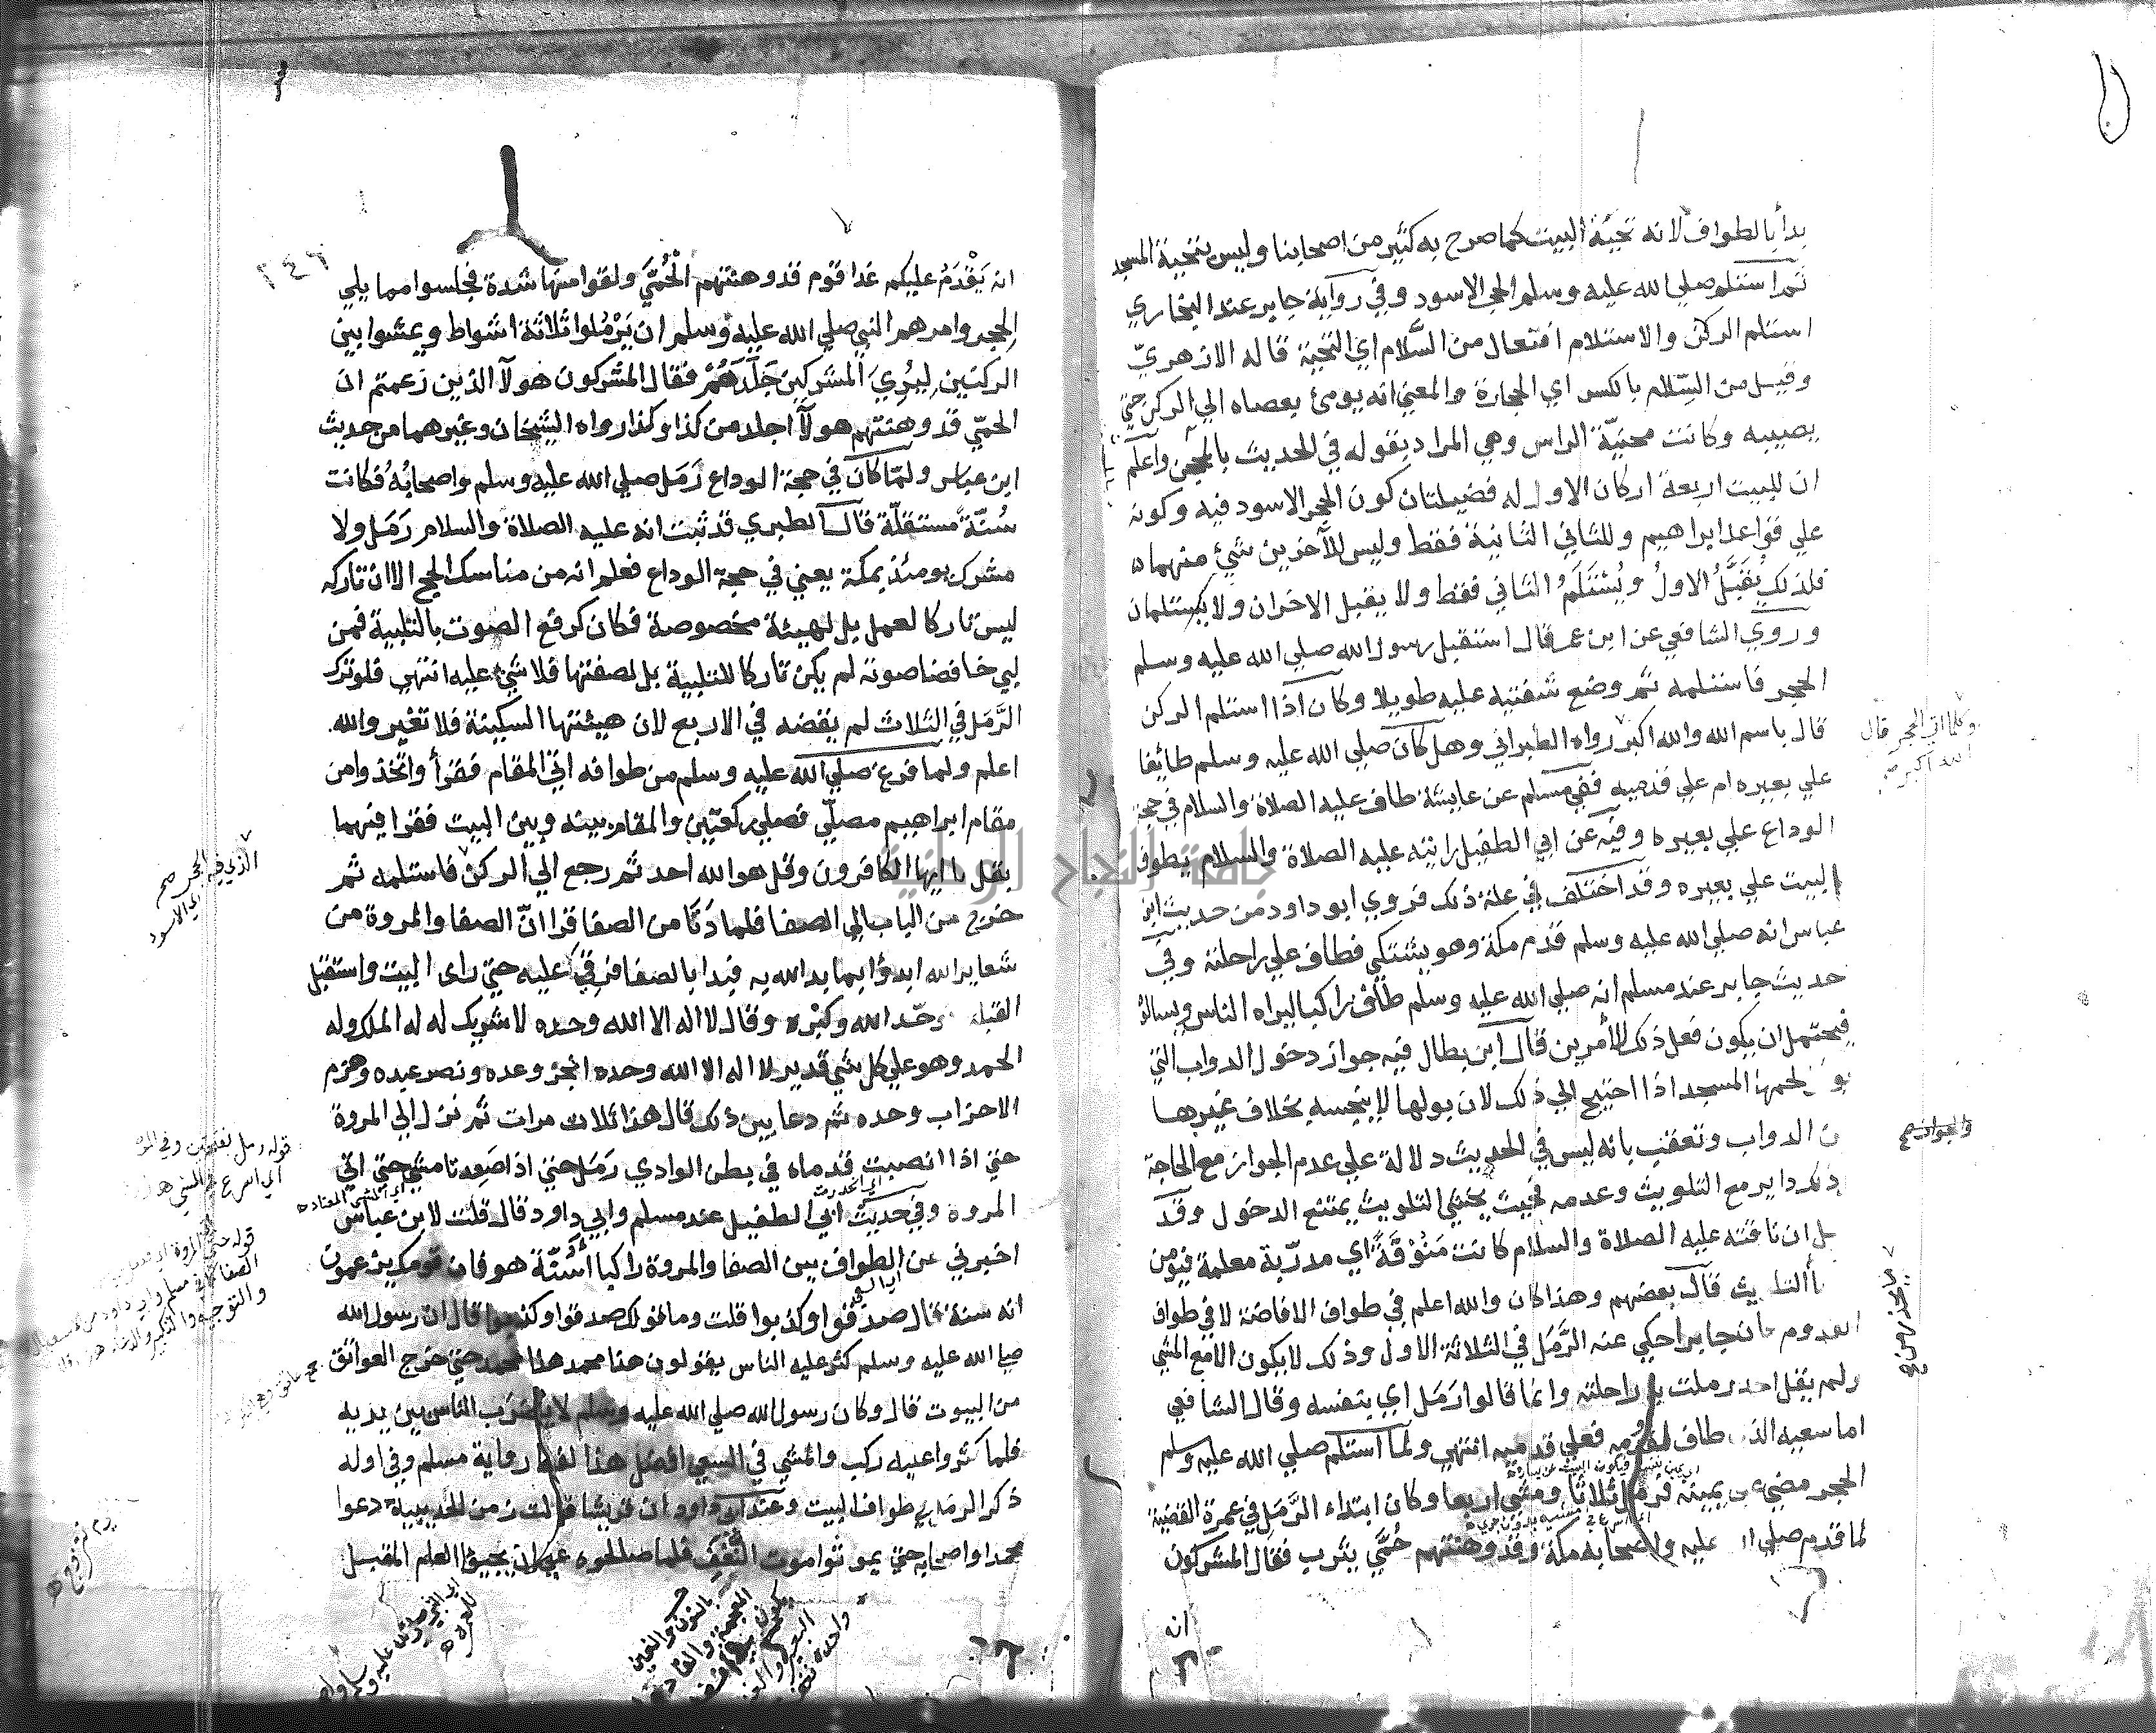 بدأ بالطواف لانه تحية البيت كما صرح به كثير من اصحابنا وليس بتحية المسجد
ثم استلم صلي الله عليه وسلم الحجر الاسود وفي رواية جابر عند البخاري
استلم الركن والاستلام افتعال من السَّلام اي التحية قاله الازهريّ
وقيل من السِّلام بالكسر اي الحجارة والمعني انه يومئ بعصاه الي الركن حتي
يصيبه وكانت محنيّة الراس وهي المراد بقوله في الحديث بالمحجن واعلم
ان للبيت اربعة اركان الاول له فضيلتان كون الحجر الاسود فيه وكونه
علي قواعد ابراهيم وللثاني الثانية فقط وليس للآخرين شئ منهما
فلذلك يُقَبَّلُ الاولُ ويُسْتَلَمُ الثاني فقط ولا يقبل الاخران ولا يستلمان
وروي الشافعي عن ابن عمر قال استقبل رسول الله صلي الله عليه وسلم
الحجر فاستلمه ثم وضع شفتيه عليه طويلا وكان اذا استلم الركن
قال باسم الله والله اكبر رواه الطبراني وهل كان صلي الله عليه وسلم طائفا
وكلما اتي الحجر قال
الله اكبر
علي بعيره ام علي قدميه ففي مسلم عن عايشة طاف عليه الصلاة والسلام في حجة
الوداع علي بعيره وفيه عن ابي الطفيل رايته عليه الصلاة والسلام يطوف
البيت علي بعيره وقد اختلف في علة ذلك فروي ابو داود من حديث ابن
عباس انه صلي الله عليه وسلم قدم مكة وهو يشتكي فطاف علي راحلته وفي
حديث جابر عند مسلم انه صلي الله عليه وسلم طاف راكبا ليراه الناس ويسالوه
فيحتمل ان يكون فعل ذلك للأمرين قال ابن بطال فيه جواز دخول الدواب التي
لحمها المسجد اذا احتيج الي ذلك لان بولها لا ينجسه بخلاف غيرها
ن الدواب وتعقب بانه ليس في الحديث دلالة علي عدم الجواز مع الحاجة
ذلك داير مع التلويث وعدمه فحيث يخشي التلويث يمتنع الدخول وقد
ل ان ناقته عليه الصلاة والسلام كانت مُنَوَّقَةً اي مدرّبة معلمة فيؤمن
التلويث قال بعضهم وهذا كان والله اعلم في طواف الافاضة لا في طواف
القدوم فان جابرا حكي عنه الرَّمَل في الثلاثة الاول وذلك لا يكون الا مع المشي
ولم يقل احد رملت به راحلته وانما قالوا رَمَل اي بنفسه وقال الشافعي
اما سعيه الذي طاف لقدومه فعلي قدميه انتهي ولما استلم صلي الله عليه وسلم
الحجر مضي عن يمينه فرمل ثلاثا ومشي اربعا وكان ابتداء الرَّمَل في عمرة القضية
لما قدم صلي الله عليه واصحابه مكة وقد وهنتهم حُمَّي يثرب فقال المشركون
انه
٢٤٦
انه يَقْدَمُ عليكم غدا قوم قد وهنتهم الْحُمَّي ولقوا منها شدة فجلسوا مما يلي
الحِجر وامرهم النبي صلي الله عليه وسلم ان يَرْمُلوا ثلاثة اشواط ويمشوا بين
الركنين لِيُرِيَ المشركين جَلَدَهُمْ فقال المشركون هولآ الذين زعمتم ان
الحمّي قد وهنتهم هولآ اجلد من كذا وكذا رواه الشيخان وغيرهما من حديث
ابن عباس ولمّا كان في حجة الوداع رَمَل صلي الله عليه وسلم واصحابُهُ فكانت
سُنّةً مستقلّة قال الطبري قد ثبت انه عليه الصلاة والسلام رَمَل ولا
مشرك يومئذ بمكة يعني في حجة الوداع فعلم انه من مناسك الحج الا ان تاركه
ليس تاركا لعمل بل لهيئة مخصوصة فكان كرفع الصوت بالتلبية فمن
لبي خافضا صوته لم يكن تاركا للتلبية بل لصفتها فلا شئ عليه انتهي فلو ترك
الرَّمَل في الثلاث لم يقضه في الاربع لان هيئتها السكينة فلا تغير والله
اعلم ولما فرغ صلي الله عليه وسلم من طوافه اتي المقام فقرأ واتخذوا من
مقام ابراهيم مصلّي فصلي ركعتين والمقام بينه وبين البيت فقرا فيهما
بقل يا ايها الكافرون وقل هو الله احد ثم رجع الي الركن فاستلمه ثم
الذي فيه الحجر صح
الاسود
خرج من الباب الي الصفا فلما دَنَا من الصفا قرا انّ الصفا والمروة من
شعاير الله ابدؤا بما بدا الله به فبدا بالصفا فرقي عليه حتي راي البيت واستقبل
القبلة وحّد الله وكبّره وقال لا اله الا الله وحده لا شريك له له الملك وله
الحمد وهو علي كل شئ قدير لا اله الا الله وحده انجز وعده ونصر عبده وهزم
الاحزاب وحده ثم دعا بين ذلك قال هذا ثلاث مرات ثم نزل الي المروة
حتي اذا انصبت قدماه في بطن الوادي رَمَل حتي اذا صَعِدتا مشي حتي اتي
اي انحدرت
اي المشي المعتاد
المروه وفي حديث ابي الطفيل عند مسلم وابي داود قال قلت لابن عباس
اخبرني عن الطواف بين الصفا والمروة راكبا أسُنّة هو فان قومك يزعمون
اي السعي
انه سنة قال صدقوا وكذبوا قلت وما قولك صدقوا وكذبوا قال ان رسول الله
صلي الله عليه وسلم كثر عليه الناس يقولون هذا محمد هذا محمد حتي خرج العواتق
من البيوت قال وكان رسول الله صلي الله عليه وسلم لا يُضرَب الناس بين يديه
فلما كثروا عليه ركب والمشي في السعي افضل هذا لفظ رواية مسلم وفي اوله
ذكر الرمل في طواف البيت وعند ابي داود ان قريشا قالت زمن الحديبية دعوا
محمدا واصحابه حتي يموتوا موت النَّغَفِ فلما صالحوه علي ان يجيؤا العام المقبل
بالنون والغين
جامعة النجاح الوطنية